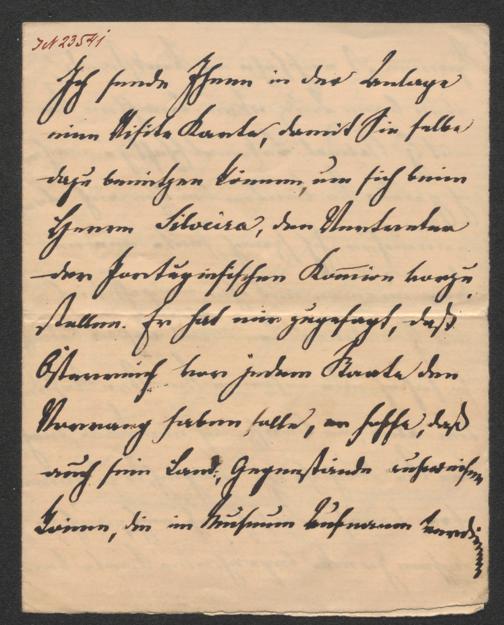 IN 23541
Ich sende Ihnen in der Anlage
eine Visite Karte, damit Sie selbe
dazu benützen können, um sich beim
Herrn Silveira, den Vertreter
der Portugiesischen Komion vorzu
stellen. Er hat mir zugesagt, daß
Österreich vor jedem Staate den
Vorrang haben solle, er hoffe, daß
auch sein Land, Gegenstände aufweisen
könne, die im Museum Aufnamen